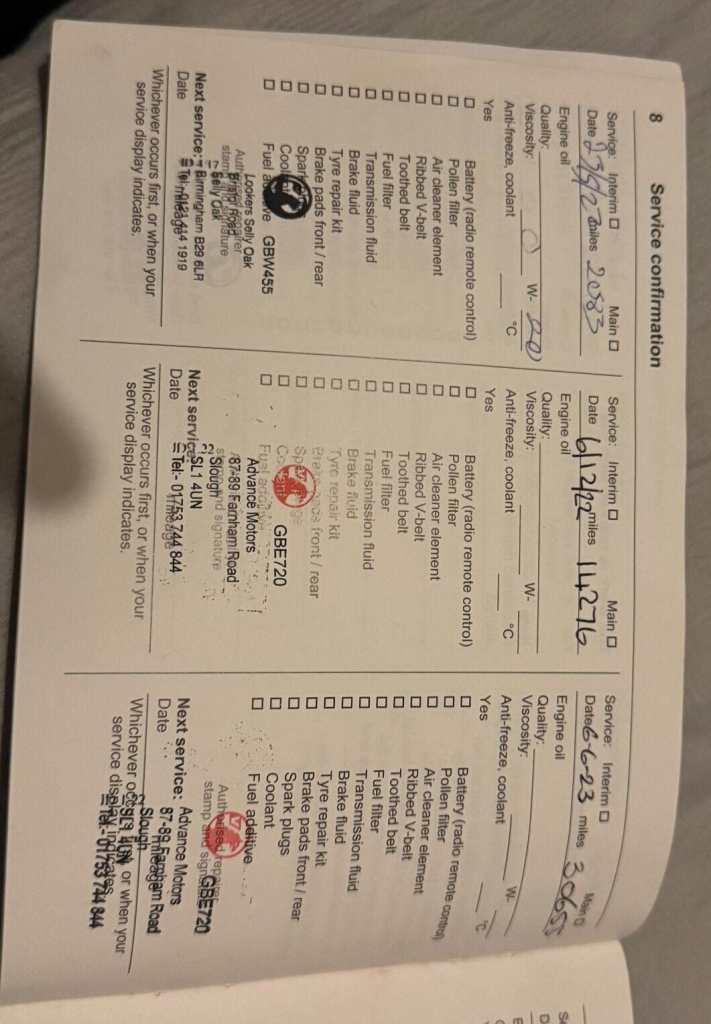 8
Service confirmation
Service: Interim ☐ Main ☐
Date miles 2083
Engine oil
Quality:
Viscosity: W- 20
Anti-freeze, coolant °C
Yes
☐ Battery (radio remote control)
☐ Pollen filter
☐ Air cleaner element
☐ Ribbed V-belt
☐ Toothed belt
☐ Fuel filter
☐ Transmission fluid
☐ Brake fluid
☐ Tyre repair kit
☐ Brake pads front / rear
☐ Spark
☐ Coolant
☐ Fuel additive GBW455
Lookers Selly Oak
Authorised repairer
Bristol Road
stamp and signature
Selly Oak
Next service: Birmingham B29 6LR
Date mileage
Tel 0121 414 1919
Whichever occurs first, or when your
service display indicates.
Service: Interim ☐ Main ☐
Date 6/12/22 miles 14276
Engine oil
Quality:
Viscosity: W-
Anti-freeze, coolant °C
Yes
☐ Battery (radio remote control)
☐ Pollen filter
☐ Air cleaner element
☐ Ribbed V-belt
☐ Toothed belt
☐ Fuel filter
☐ Transmission fluid
☐ Brake fluid
☐ Tyre repair kit
☐ Brake pads front / rear
☐
☐ GBE720
☐ Fuel additive
Advance Motors
87-89 Farnham Road
Slough and signature
Next service: SL1 4UN
Date mileage
Tel:- 01753 744 844
Whichever occurs first, or when your
service display indicates.
Service: Interim ☐ Main ☐
Date 6-6-23 miles 30655
Engine oil
Quality:
Viscosity: W-
Anti-freeze, coolant °C
Yes
☐ Battery (radio remote control)
☐ Pollen filter
☐ Air cleaner element
☐ Ribbed V-belt
☐ Toothed belt
☐ Fuel filter
☐ Transmission fluid
☐ Brake fluid
☐ Tyre repair kit
☐ Brake pads front / rear
☐ Spark plugs
☐ Coolant
☐ Fuel additive
Authorised repairer
stamp and signature GBE720
Next service: Advance Motors
Date 87-89 Farnham Road
mileage
Slough
Whichever occurs first, or when your
SL1 4UN
service display indicates.
Tel:- 01753 744 844